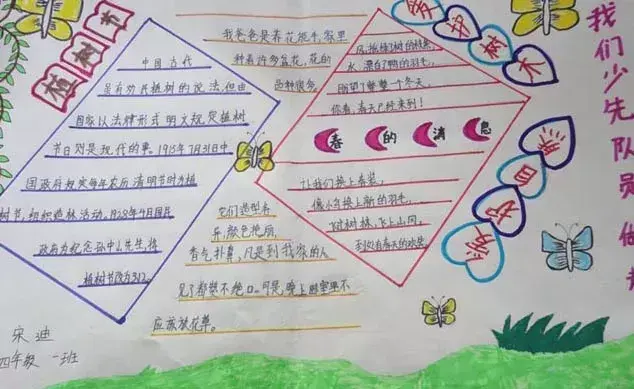 植树节
中国古代
虽有劝民植树的说法,但由
国家以法律形式明文规定植树
节日则是现代的事。1915年7月31日中
国政府规定每年农历清明节时为植
树节,组织造林活动,1928年4月国民
政府为纪念孙中山先生,将
植树节改为3.12。
我爸爸是养花能手,家里
种着许多盆花,花的
品种很多。
它们造型各
异,颜色艳丽,
香气扑鼻,凡是到我家的人
见了都赞不绝口。可是,晚上卧室里不
应该放花草。
风,梳绿了树的枝条,
水,漂白了鸭的羽毛,
盼望了整整一个冬天,
你看,春天已经来到!
春的消息
让我们换上春装,
像小鸟换上新的羽毛,
飞过树林,飞上山冈,
到处有春天的欢笑。
爱护树木
我们少先队员做
宋迪
四年级一班